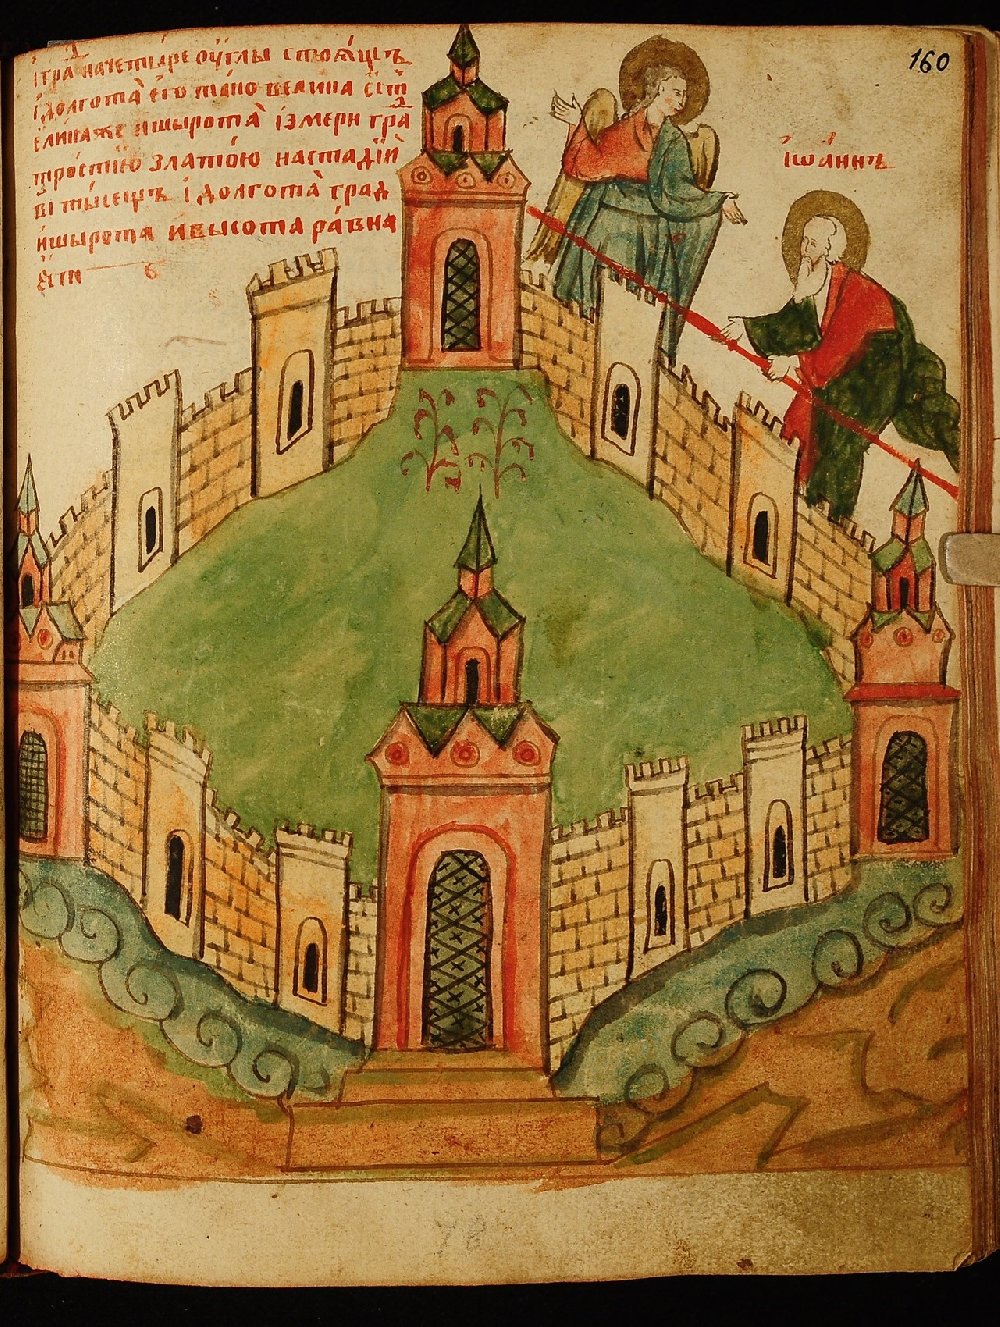 160
і гра́ на четы́ре ѹ́глы стоя́щь
і долгота̀ єгѡ̀ то́лико велика єсть
єлика же и шырота̀ ізмери гра
тростїю златою на стадїй
ві тысещъ і долгота̀ град
и шырота и высота ра́вна
єсти
ішаннъ